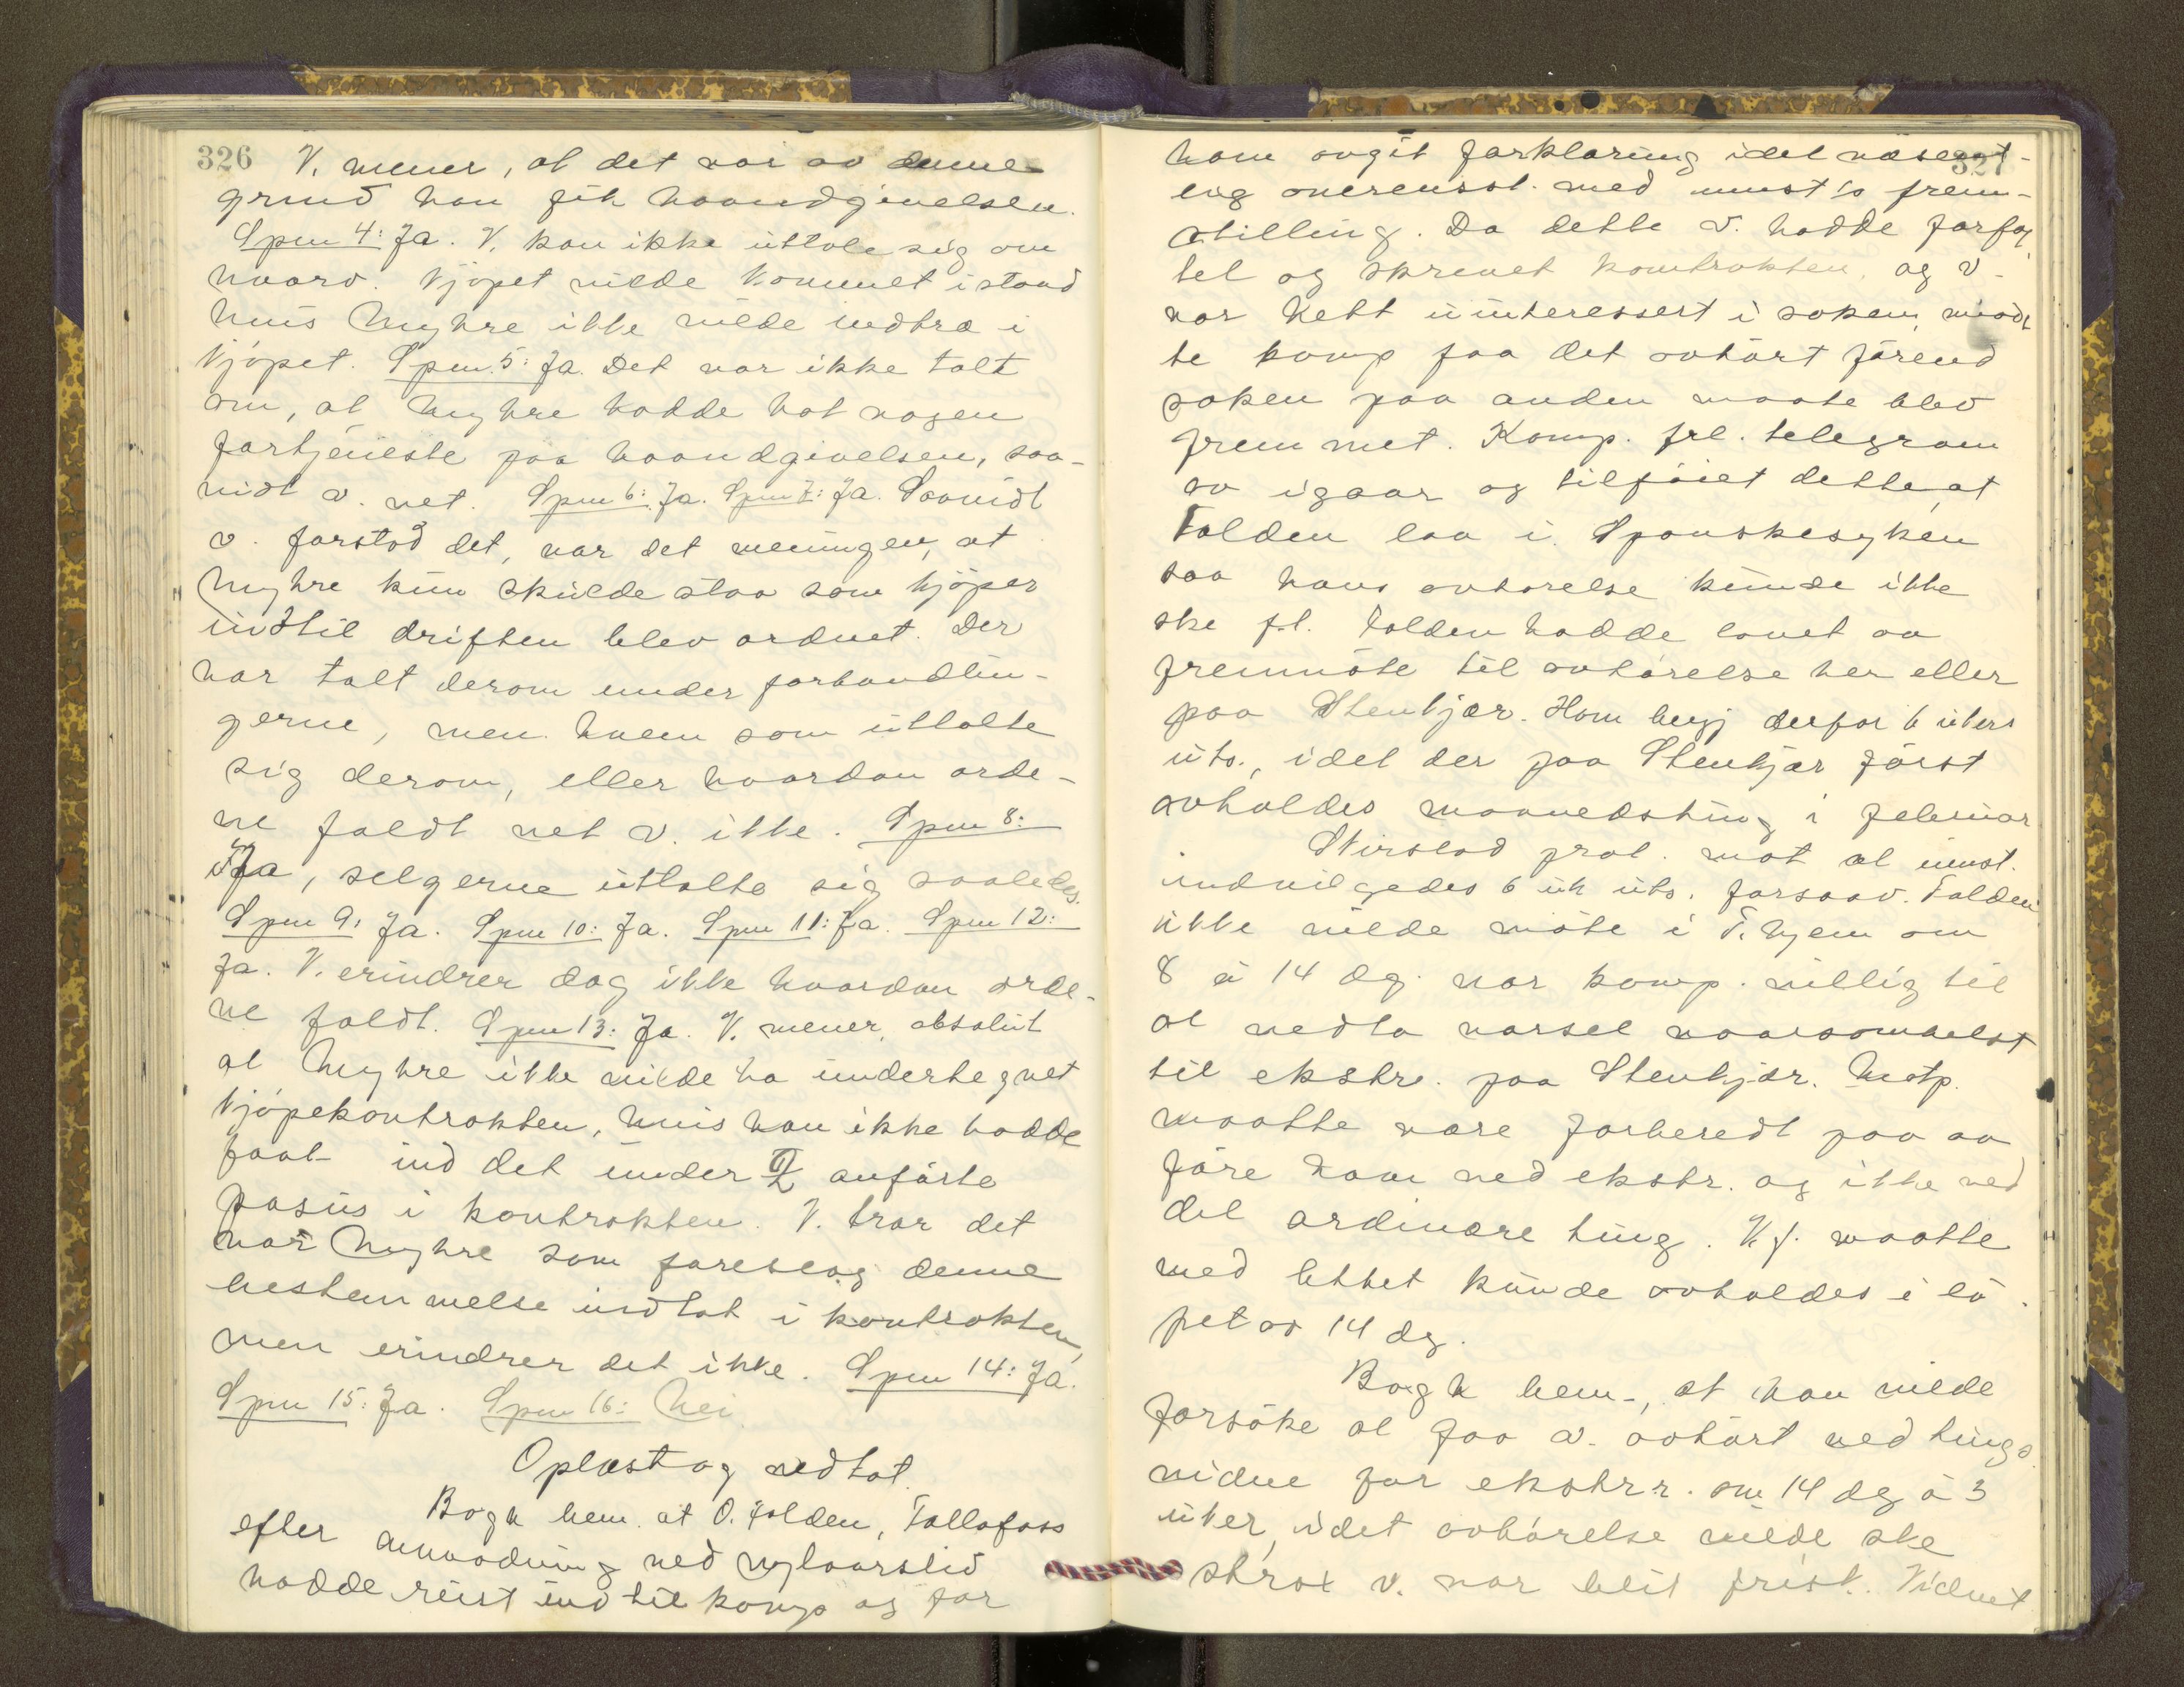 326
V. mener, at det var av denne
grund han fik haandgivelsen.
Spm 4: Ja. V. kan ikke uttale sig om
hvorv. kjøpet vilde kommet istand
hvis Myhre ikke vilde indtræ i
kjøpet. Spm. 5: Ja. Det var ikke talt
om, at Myhre hadde hat nogen
fortjeneste paa haandgivelsen, saa-
vidt v. vet. Spm 6: Ja. Spm 7: Ja. Saavidt
v. forstod det, var det meningen, at
Myhre kun skulde staa som kjøper
indtil driften blev ordnet. Der
var talt derom under forhandlin-
gerne, men hvem som uttalte
sig derom, eller hvordan orde-
ne faldt vet v. ikke. Spm 8:
Ja, selgerne uttalte sig saaledes.
Spm 9: Ja. Spm 10: Ja. Spm 11: Ja. Spm 12:
Ja. V. erindrer dog ikke hvordan orde-
ne faldt. Spm 13: Ja. V. mener absolut
at Myhre ikke vilde ha undertegnet
kjøpekontrakten, hvis han ikke hadde
faat ind det under anførte
pasus i kontrakten. V. tror det
var Myhre som foreslog denne
bestemmelse indtat i kontrakten,
men erindrer det ikke. Spm 14: Ja.
Spm 15: Ja. Spm 16: Nei.
Oplæst og vedtat.
Bogh bem. at O. Folden, Follafoss
efter anmodning ved nylaarstid
hadde reist ind til komp og for
327
ham avgit forklaring idet væsent-
lig overensst. med mnst's frem-
stilling. Da dette v. hadde forfat
tet og skrevet kontrakten, og v.
var helt uinteressert i saken, maat
te komp faa det avhørt førend
saken paa anden maate blev
fremmet. Komp. frl. telegram
av igaar og tilføiet dette, at
Folden laa i Spanskesyken
saa hans avhørelse kunde ikke
ske f.t. Folden hadde lovet aa
fremmøte til avhørelse her eller
paa Stenkjær. Han begj derfor 6 ukers
uts., idet der paa Stenkjær først
avholdes maanedsting i februar
Stirslad prot. mot at mnst.
indvilgedes 6 uk uts. forsaav. Folden
ikke vilde møte i T.hjem om
8 à 14 dg. var komp. villig til
at vedta varsel naarsomhelst
til ekstrr. paa Stenkjær. Motp.
maatte være forberedt paa aa
føre ham ved ekstr. og ikke ved
det ordinære ting. V.f. maatte
med letthet kunde avholdes i lø
pet av 14 dg.
Bogh bem., at han vilde
forsøke at faa v. avhørt ved tings
vidne for ekstrr. om 14 dg à 3
uker, idet avhørelse vilde ske
strax v. var blit frisk. Vidnet